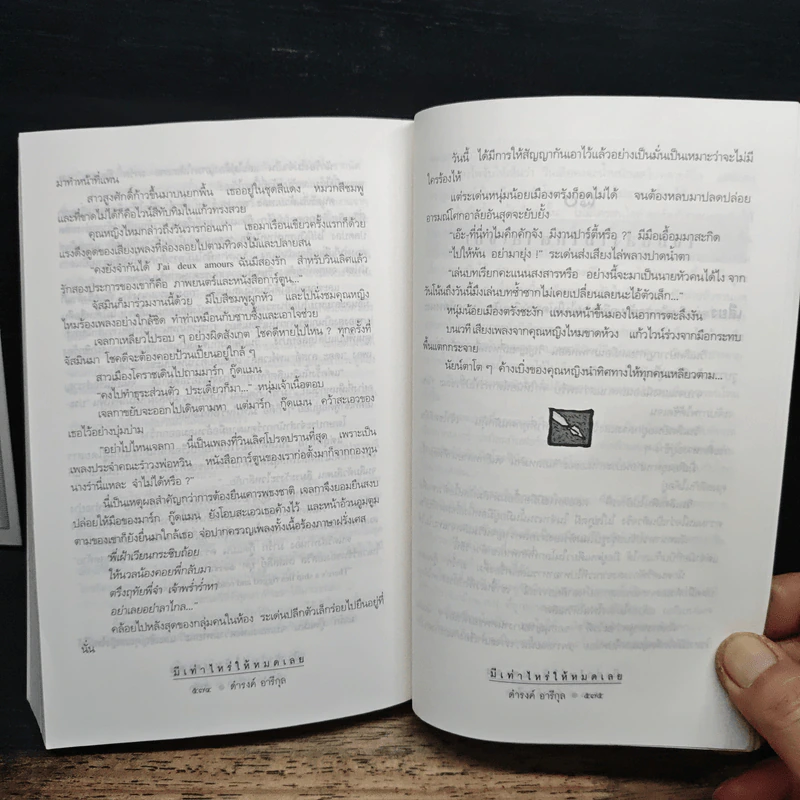 มาทำหน้าที่แทน
สาวสูงศักดิ์ก้าวขึ้นมาบนยกพื้น เธออยู่ในชุดสีแดง หมวกสีชมพู
และที่ขาดไม่ได้ก็คือไวน์สีทับทิมในแก้วทรงสวย
คุณหญิงไหมกล่าวถึงวันวารก่อนเก่า เธอมาเรือนเขียวครั้งแรกก็ด้วย
แรงดึงดูดของเสียงเพลงที่ล่องลอยไปตามทิวดงไม้และปลายสน
"คงยังจำกันได้ J'ai deux amours ฉันมีสองรัก สำหรับวินเลิศแล้ว
รักสองประการของเขาก็คือ ภาพยนตร์และหนังสือการ์ตูน..."
จัสมินก็มาร่วมงานนี้ด้วย มีโบสีชมพูผูกหัว และไปนั่งชมคุณหญิง
ไหมร้องเพลงอย่างใกล้ชิด ทำท่าเหมือนกับซาบซึ้งและเอาใจช่วย
เจลกาเหลียวไปรอบ ๆ อย่างผิดสังเกต โชคดีหายไปไหน ? ทุกครั้งที่
จัสมินมา โชคดีจะต้องคอยป้วนเปี้ยนอยู่ใกล้ ๆ
สาวเมืองโคราชเดินไปถามมาร์ก กู๊ดแมน
"คงไปทำธุระส่วนตัว ประเดี๋ยวก็มา..." หนุ่มเจ้าเนื้อตอบ
เจลกาขยับจะออกไปเดินตามหา แต่มาร์ก กู๊ดแมน คว้าสะเอวของ
เธอไว้อย่างปุบปาบ
"อย่าไปไหนเจลกา นี่เป็นเพลงที่วินเลิศโปรดปรานที่สุด เพราะเป็น
เพลงประจำคณะรำวงพ่อหวิน หนังสือการ์ตูนของเราก่อตั้งมาก็จากกองทุน
นางรำนี่แหละ จำไม่ได้หรือ ?"
นี่เป็นเหตุผลสำคัญกว่าการต้องยืนเคารพธงชาติ เจลกาจึงยอมยืนสงบ
ปล่อยให้มือของมาร์ก กู๊ดแมน ยังโอบสะเอวเธอค้างไว้ และหน้าอ้วนอูมตูม
ตามของเขาก็ยังยื่นมาใกล้เธอ จ่อปากครวญเพลงทั้งเนื้อร้องภาษาฝรั่งเศส
พี่เฝ้าเวียนกระซิบถ้อย
ให้นวลน้องคอยพี่กลับมา
ตรึงฤทัยพี่จำ เจ้าพร่ำร่ำหา
อย่าเลยอย่าลาไกล..."
คล้อยไปหลังสุดของกลุ่มคนในห้อง ระเด่นปลีกตัวเล็กร่อยไปยืนอยู่ที่
นั่น
มีเท่าไหร่ให้หมดเลย
๕๙๔ ดำรงค์ อารีกุล
วันนี้ ได้มีการให้สัญญากันเอาไว้แล้วอย่างเป็นมั่นเป็นเหมาะว่าจะไม่มี
ใครร้องไห้
แต่ระเด่นหนุ่มน้อยเมืองตรังก็อดไม่ได้ จนต้องหลบมาปลดปล่อย
อารมณ์โศกอาลัยอันสุดจะยับยั้ง
"เอ๊ะ-ที่นี่ทำไมคึกคักจัง มีงานปาร์ตี้หรือ ?" มีมือเอื้อมมาสะกิด
"ไปให้พ้น อย่ามายุ่ง !" ระเด่นส่งเสียงไล่พลางปาดน้ำตา
"เล่นบทเรียกคะแนนสงสารหรือ อย่างนี้จะมาเป็นนายหัวคนได้ไง จาก
วันโน้นถึงวันนี้มึงเล่นบทซ้ำซากไม่เคยเปลี่ยนเลยนะไอ้ตัวเล็ก..."
หนุ่มน้อยเมืองตรังชะงัก แหงนหน้าขึ้นมองในอาการตะลึงงัน
บนเวที เสียงเพลงจากคุณหญิงไหมขาดห้วง แก้วไวน์ร่วงจากมือกระทบ
พื้นแตกกระจาย
นัยน์ตาโต ๆ ค้างเบิ่งของคุณหญิงนำทิศทางให้ทุกคนเหลียวตาม...
มีเท่าไหร่ให้หมดเลย
ดำรงค์ อารีกุล ๕๙๕